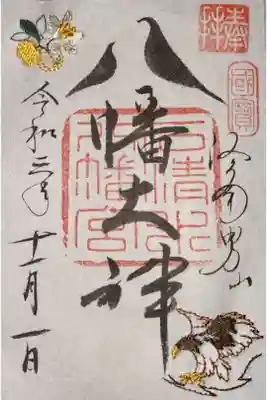 奉拝
國寶
洛南男山
八幡大神
石清水八幡宮
令和 年
十一月一日